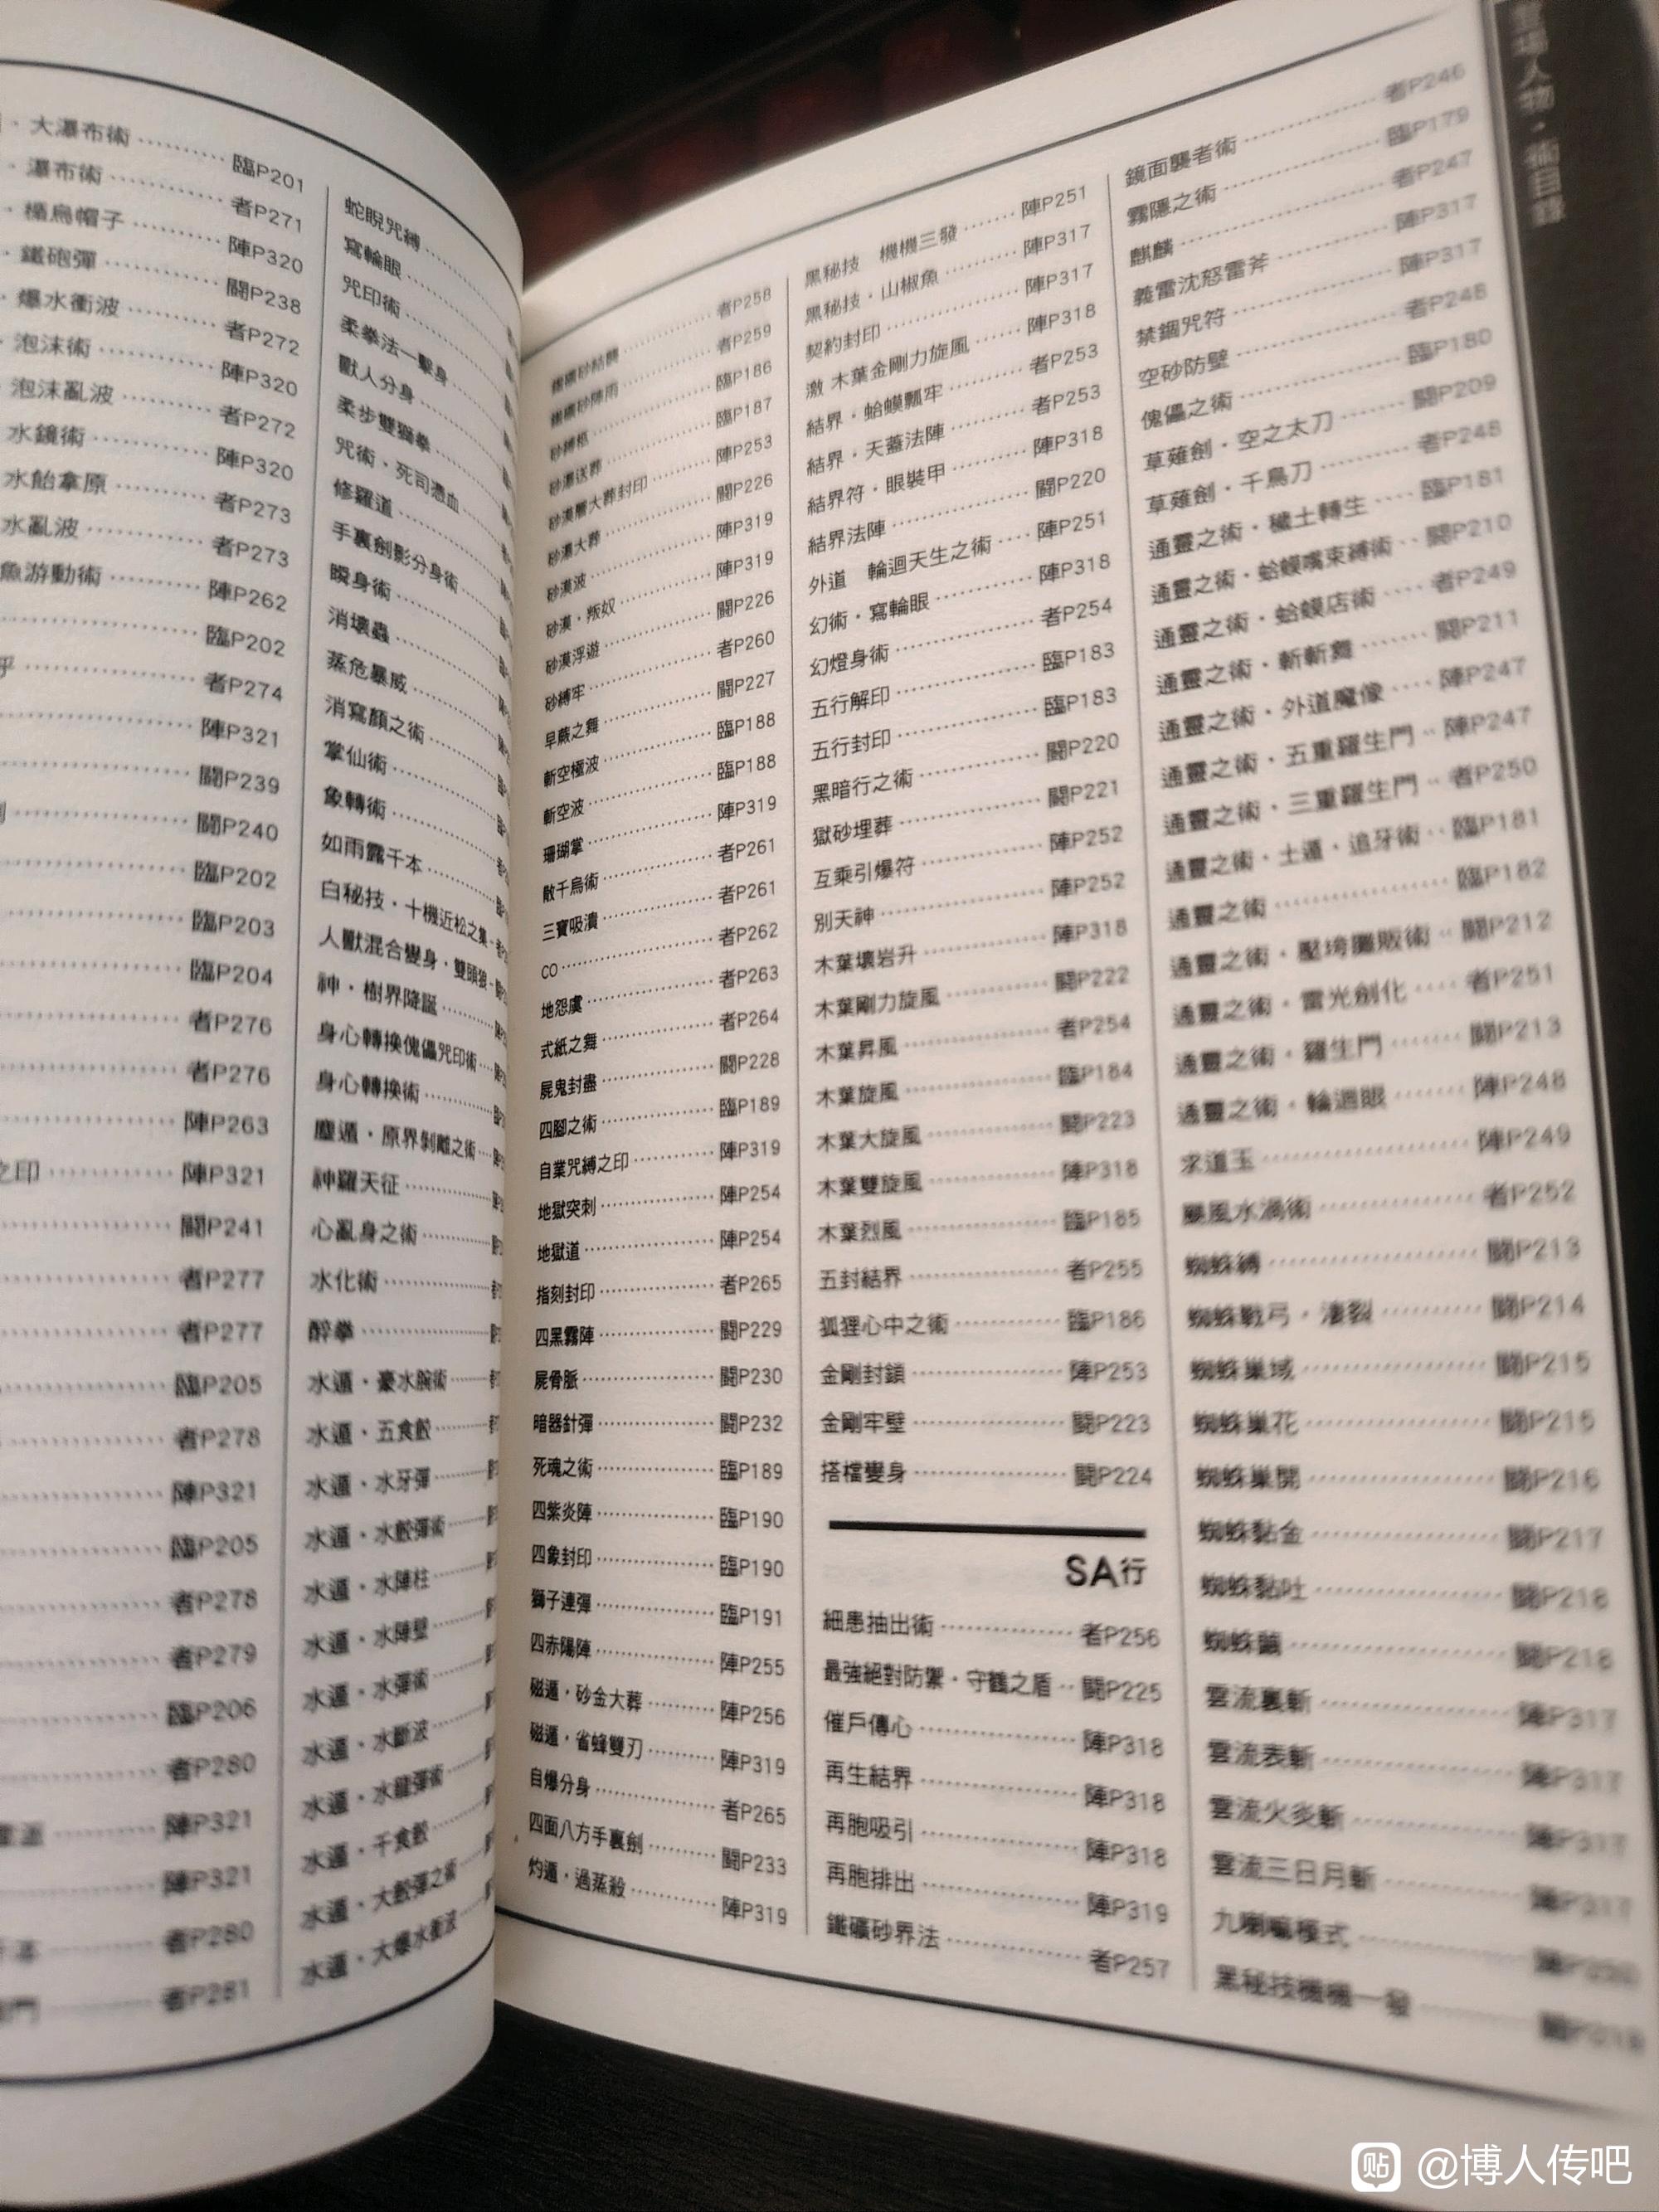 登場人物・術目錄
鏡面襲者術 者P246
霧隱之術 臨P179
麒麟 者P247
義雷沈怒雷斧 陣P317
禁錮咒符 陣P317
空砂防壁 者P248
傀儡之術 臨P180
草薙劍・空之太刀 鬪P209
草薙劍・千鳥刀 者P248
通靈之術・穢土轉生 臨P181
通靈之術・蛤蟆嘴束縛術 鬪P210
通靈之術・蛤蟆店術 者P249
通靈之術・斬斬舞 鬪P211
通靈之術・外道魔像 陣P247
通靈之術・五重羅生門 陣P247
通靈之術・三重羅生門 者P250
通靈之術・土遁・追牙術 臨P181
通靈之術 臨P182
通靈之術・壓垮攤販術 鬪P212
通靈之術・雷光劍化 者P251
通靈之術・羅生門 鬪P213
通靈之術・輪迴眼 陣P248
求道玉 陣P249
颶風水渦術 者P252
蜘蛛縛 鬪P213
蜘蛛戰弓・淒裂 鬪P214
蜘蛛巢域 鬪P215
蜘蛛巢花 鬪P215
蜘蛛巢開 鬪P216
蜘蛛黏金 鬪P217
蜘蛛黏吐 鬪P218
蜘蛛繭 鬪P218
雲流裏斬 陣P317
雲流表斬 陣P317
雲流火炎斬 陣P317
雲流三日月斬 陣P317
九喇嘛模式
黑秘技機機一發
黑秘技 機機三發 陣P251
黑秘技・山椒魚 陣P317
契約封印 陣P317
激 木葉金剛力旋風 陣P318
結界・蛤蟆瓢牢 者P253
結界・天蓋法陣 者P253
結界符・眼裝甲 陣P318
結界法陣 鬪P220
外道 輪迴天生之術 陣P251
幻術・寫輪眼 陣P318
幻燈身術 者P254
五行解印 臨P183
五行封印 臨P183
黑暗行之術 鬪P220
獄砂埋葬 鬪P221
互乘引爆符 陣P252
別天神 陣P252
木葉壞岩升 陣P318
木葉剛力旋風 鬪P222
木葉昇風 者P254
木葉旋風 臨P184
木葉大旋風 鬪P223
木葉雙旋風 陣P318
木葉烈風 臨P185
五封結界 者P255
狐狸心中之術 臨P186
金剛封鎖 陣P253
金剛牢壁 鬪P223
搭檔變身 鬪P224
SA行
細患抽出術 者P256
最強絕對防禦・守鶴之盾 鬪P225
催戶傳心 陣P318
再生結界 陣P318
再胞吸引 陣P318
再胞排出 陣P319
鐵礦砂界法 者P257
鐵礦砂結襲 者P258
鐵礦砂陣雨 者P259
砂縛柩 臨P186
砂瀑送葬 臨P187
砂漠層大葬封印 陣P253
砂漠大葬 鬪P226
砂漠波 陣P319
砂漠・叛奴 陣P319
砂漠浮遊 鬪P226
砂縛牢 者P260
早蕨之舞 鬪P227
斬空極波 臨P188
斬空波 臨P188
珊瑚掌 陣P319
散千鳥術 者P261
三寶吸潰 者P261
CO 者P262
地怨虞 者P263
式紙之舞 者P264
屍鬼封盡 鬪P228
四腳之術 臨P189
自業咒縛之印 陣P319
地獄突刺 陣P254
地獄道 陣P254
指刻封印 者P265
四黑霧陣 鬪P229
屍骨脈 鬪P230
暗器針彈 鬪P232
死魂之術 臨P189
四紫炎陣 臨P190
四象封印 臨P190
獅子連彈 臨P191
四赤陽陣 陣P255
磁遁・砂金大葬 陣P256
磁遁・省蜂雙刃 陣P319
自爆分身 者P265
四面八方手裏劍 鬪P233
灼遁・過蒸殺 陣P319
蛇睨咒縛
寫輪眼
咒印術
柔拳法一擊身
獸人分身
柔步雙獅拳
咒術・死司憑血
修羅道
手裏劍影分身術
瞬身術
消壞蟲
蒸危暴威
消寫顏之術
掌仙術
象轉術
如雨露千本
白秘技・十機近松之集
人獸混合變身・雙頭狼
神・樹界降誕
身心轉換傀儡咒印術
身心轉換術
塵遁・原界剝離之術
神羅天征
心亂身之術
水化術
醉拳
水遁・豪水腕術
水遁・五食鮫
水遁・水牙彈
水遁・水鮫彈術
水遁・水陣柱
水遁・水陣壁
水遁・水彈術
水遁・水斷波
水遁・水龍彈術
水遁・千食鮫
水遁・大鮫彈之術
水遁・大爆水衝波
・大瀑布術 臨P201
・瀑布術 者P271
・楯烏帽子 陣P320
・鐵砲彈 鬪P238
・爆水衝波 者P272
・泡沫術 陣P320
・泡沫亂波 者P272
水鏡術 陣P320
水飴拿原 者P273
水亂波 者P273
魚游動術 陣P262
臨P202
乎 者P274
陣P321
鬪P239
鬪P240
臨P202
臨P203
臨P204
者P276
者P276
陣P263
之印 陣P321
鬪P241
者P277
者P277
臨P205
者P278
陣P321
臨P205
者P278
者P279
臨P206
者P280
陣P321
陣P321
千本 者P280
門 者P281
貼 @博人传吧